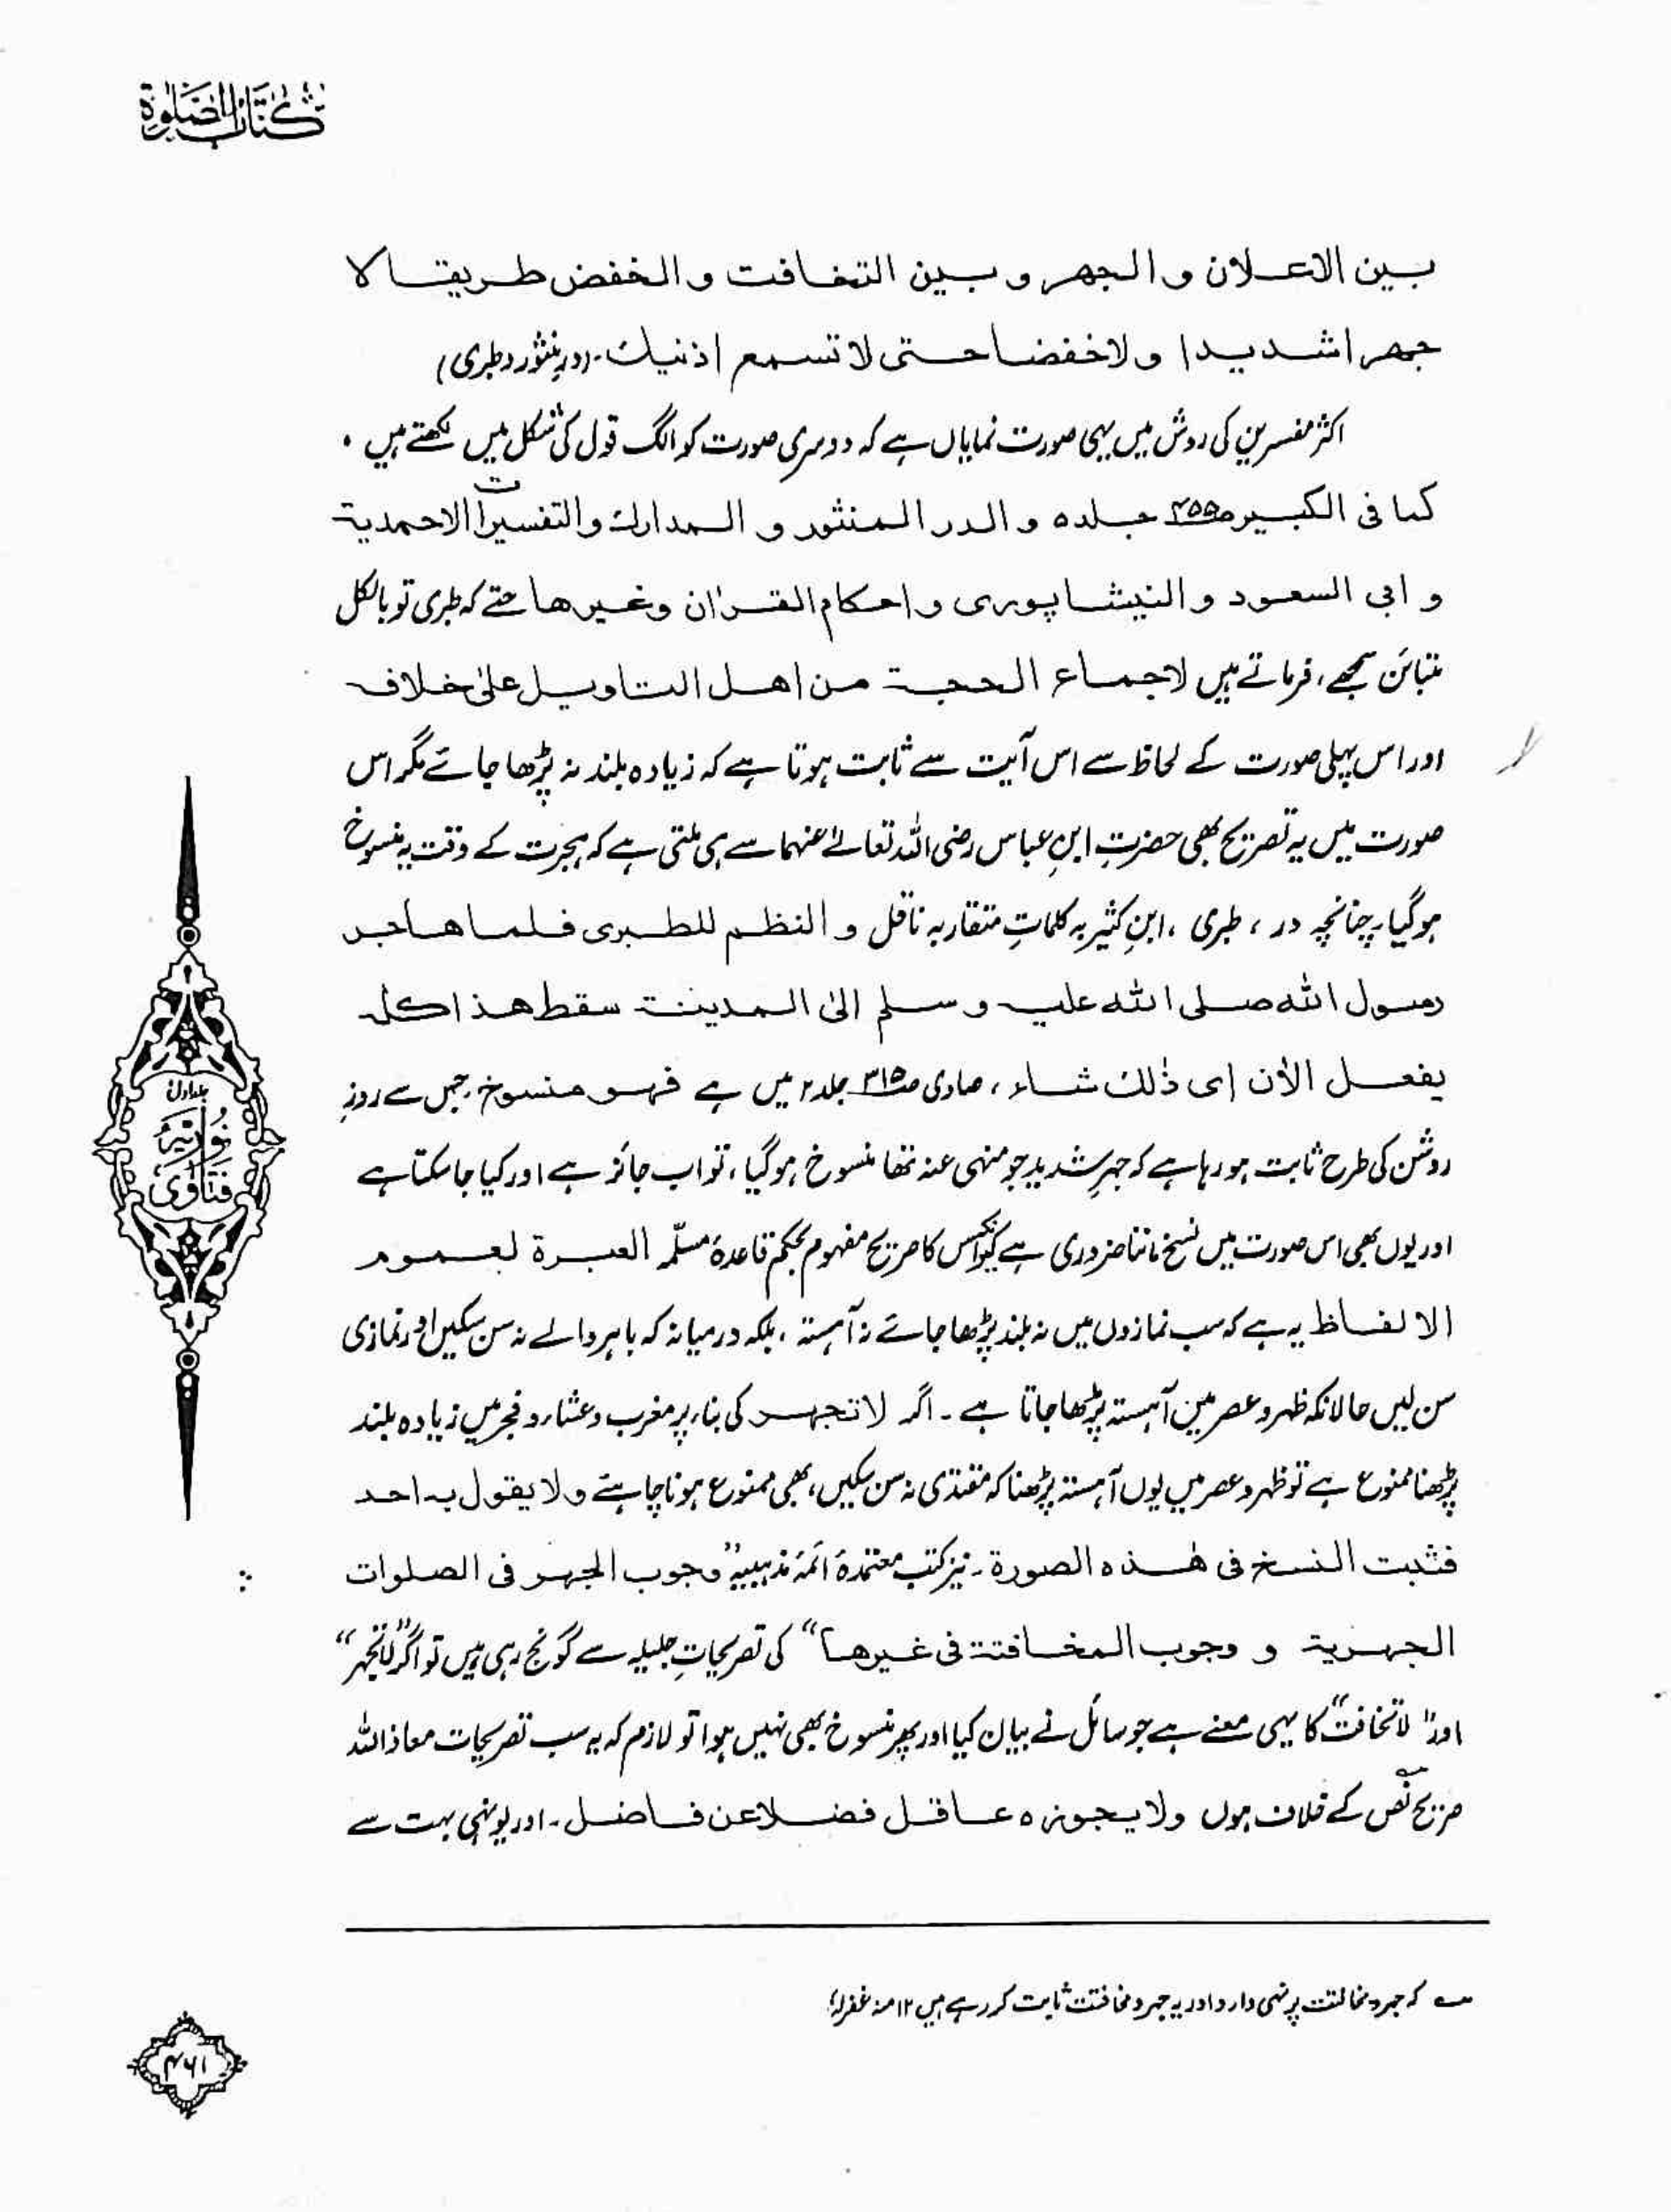 كتاب الصلوة
بين الاعلان و الجهر و بين التخافت و الخفض طريقا لا
جهرا شديدا و لا خفضا حتى لا تسمع اذنيك۔ (درِ منثور و طبری)
اکثر مفسرین کی روش میں یہی صورت نمایاں ہے کہ دوسری صورت کو الگ قول کی شکل میں لکھتے ہیں ۔
كما فى الكبير ص۴۵۵ جلد۵ و الدر المنثور و المدارك و التفسيرات الاحمدية
و ابى السعود و النيشاپورى و احكام القرآن وغيرها حتےٰ کہ طبری تو بالکل
متبائن سمجھے، فرماتے ہیں لاجماع الحجة من اهل التاويل علىٰ خلافه
اور اس پہلی صورت کے لحاظ سے اس آیت سے ثابت ہوتا ہے کہ زیادہ بلند نہ پڑھا جائے مگر اس
صورت میں یہ تصریح بھی حضرتِ ابنِ عباس رضی اللہ تعالےٰ عنہما سے ہی ملتی ہے کہ ہجرت کے وقت یہ منسوخ
ہوگیا، چنانچہ در ، طبری ، ابنِ کثیر بہ کلماتِ متقاربہ ناقل و النظم للطبرى فلما هاجر
رسول الله صلى الله عليه و سلم الىٰ المدينة سقط هذا كله
يفعل الاٰن اى ذٰلك شاء ، صاوی ص۳۱۵ جلد۲ میں ہے فهو منسوخ، جس سے روزِ
روشن کی طرح ثابت ہو رہا ہے کہ جہرِ شدید جو منہی عنہ تھا منسوخ ہوگیا، تو اب جائز ہے اور کیا جا سکتا ہے
اور یوں بھی اس صورت میں نسخ ماننا ضروری ہے کیونکہ اس کا صریح مفہوم بحکم قاعدۂ مسلّمہ العبرة لعموم
الالفاظ یہ ہے کہ سب نمازوں میں نہ بلند پڑھا جائے نہ آہستہ ، بلکہ درمیانہ کہ باہر والے نہ سن سکیں اور نمازی
سن لیں حالانکہ ظہر و عصر میں آہستہ پڑھا جاتا ہے ۔ اگر لا تجهر کی بناء پر مغرب و عشاء و فجر میں زیادہ بلند
پڑھنا ممنوع ہے تو ظہر و عصر میں یوں آہستہ پڑھنا کہ مقتدی نہ سن سکیں، بھی ممنوع ہونا چاہئے و لا يقول به احد
فثبت النسخ فى هٰذه الصورة ۔ نیز کتبِ معتمدۂ ائمۂ مذہبیہ "وجوب الجهر فى الصلوات
الجهرية و وجوب المخافتة فى غيرها" کی تصریحاتِ جلیلہ سے گونج رہی ہیں تو اگر "لا تجہر"
اور "لا تخافت" کا یہی معنے ہے جو سائل نے بیان کیا اور پھر منسوخ بھی نہیں ہوا تو لازم کہ یہ سب تصریحات معاذ اللہ
صریح نصؔ کے خلاف ہوں ولا يجوزه عاقل فضلا عن فاضل ۔ اور یونہی بہت سے
جلد اول
فتاوىٰ نوريہ
؎ کہ جہر و مخالفت پر نہی وارد اور یہ جہر و مخافتت ثابت کر رہے ہیں ۱۲ منہ غفرلہٗ
۴۶۱